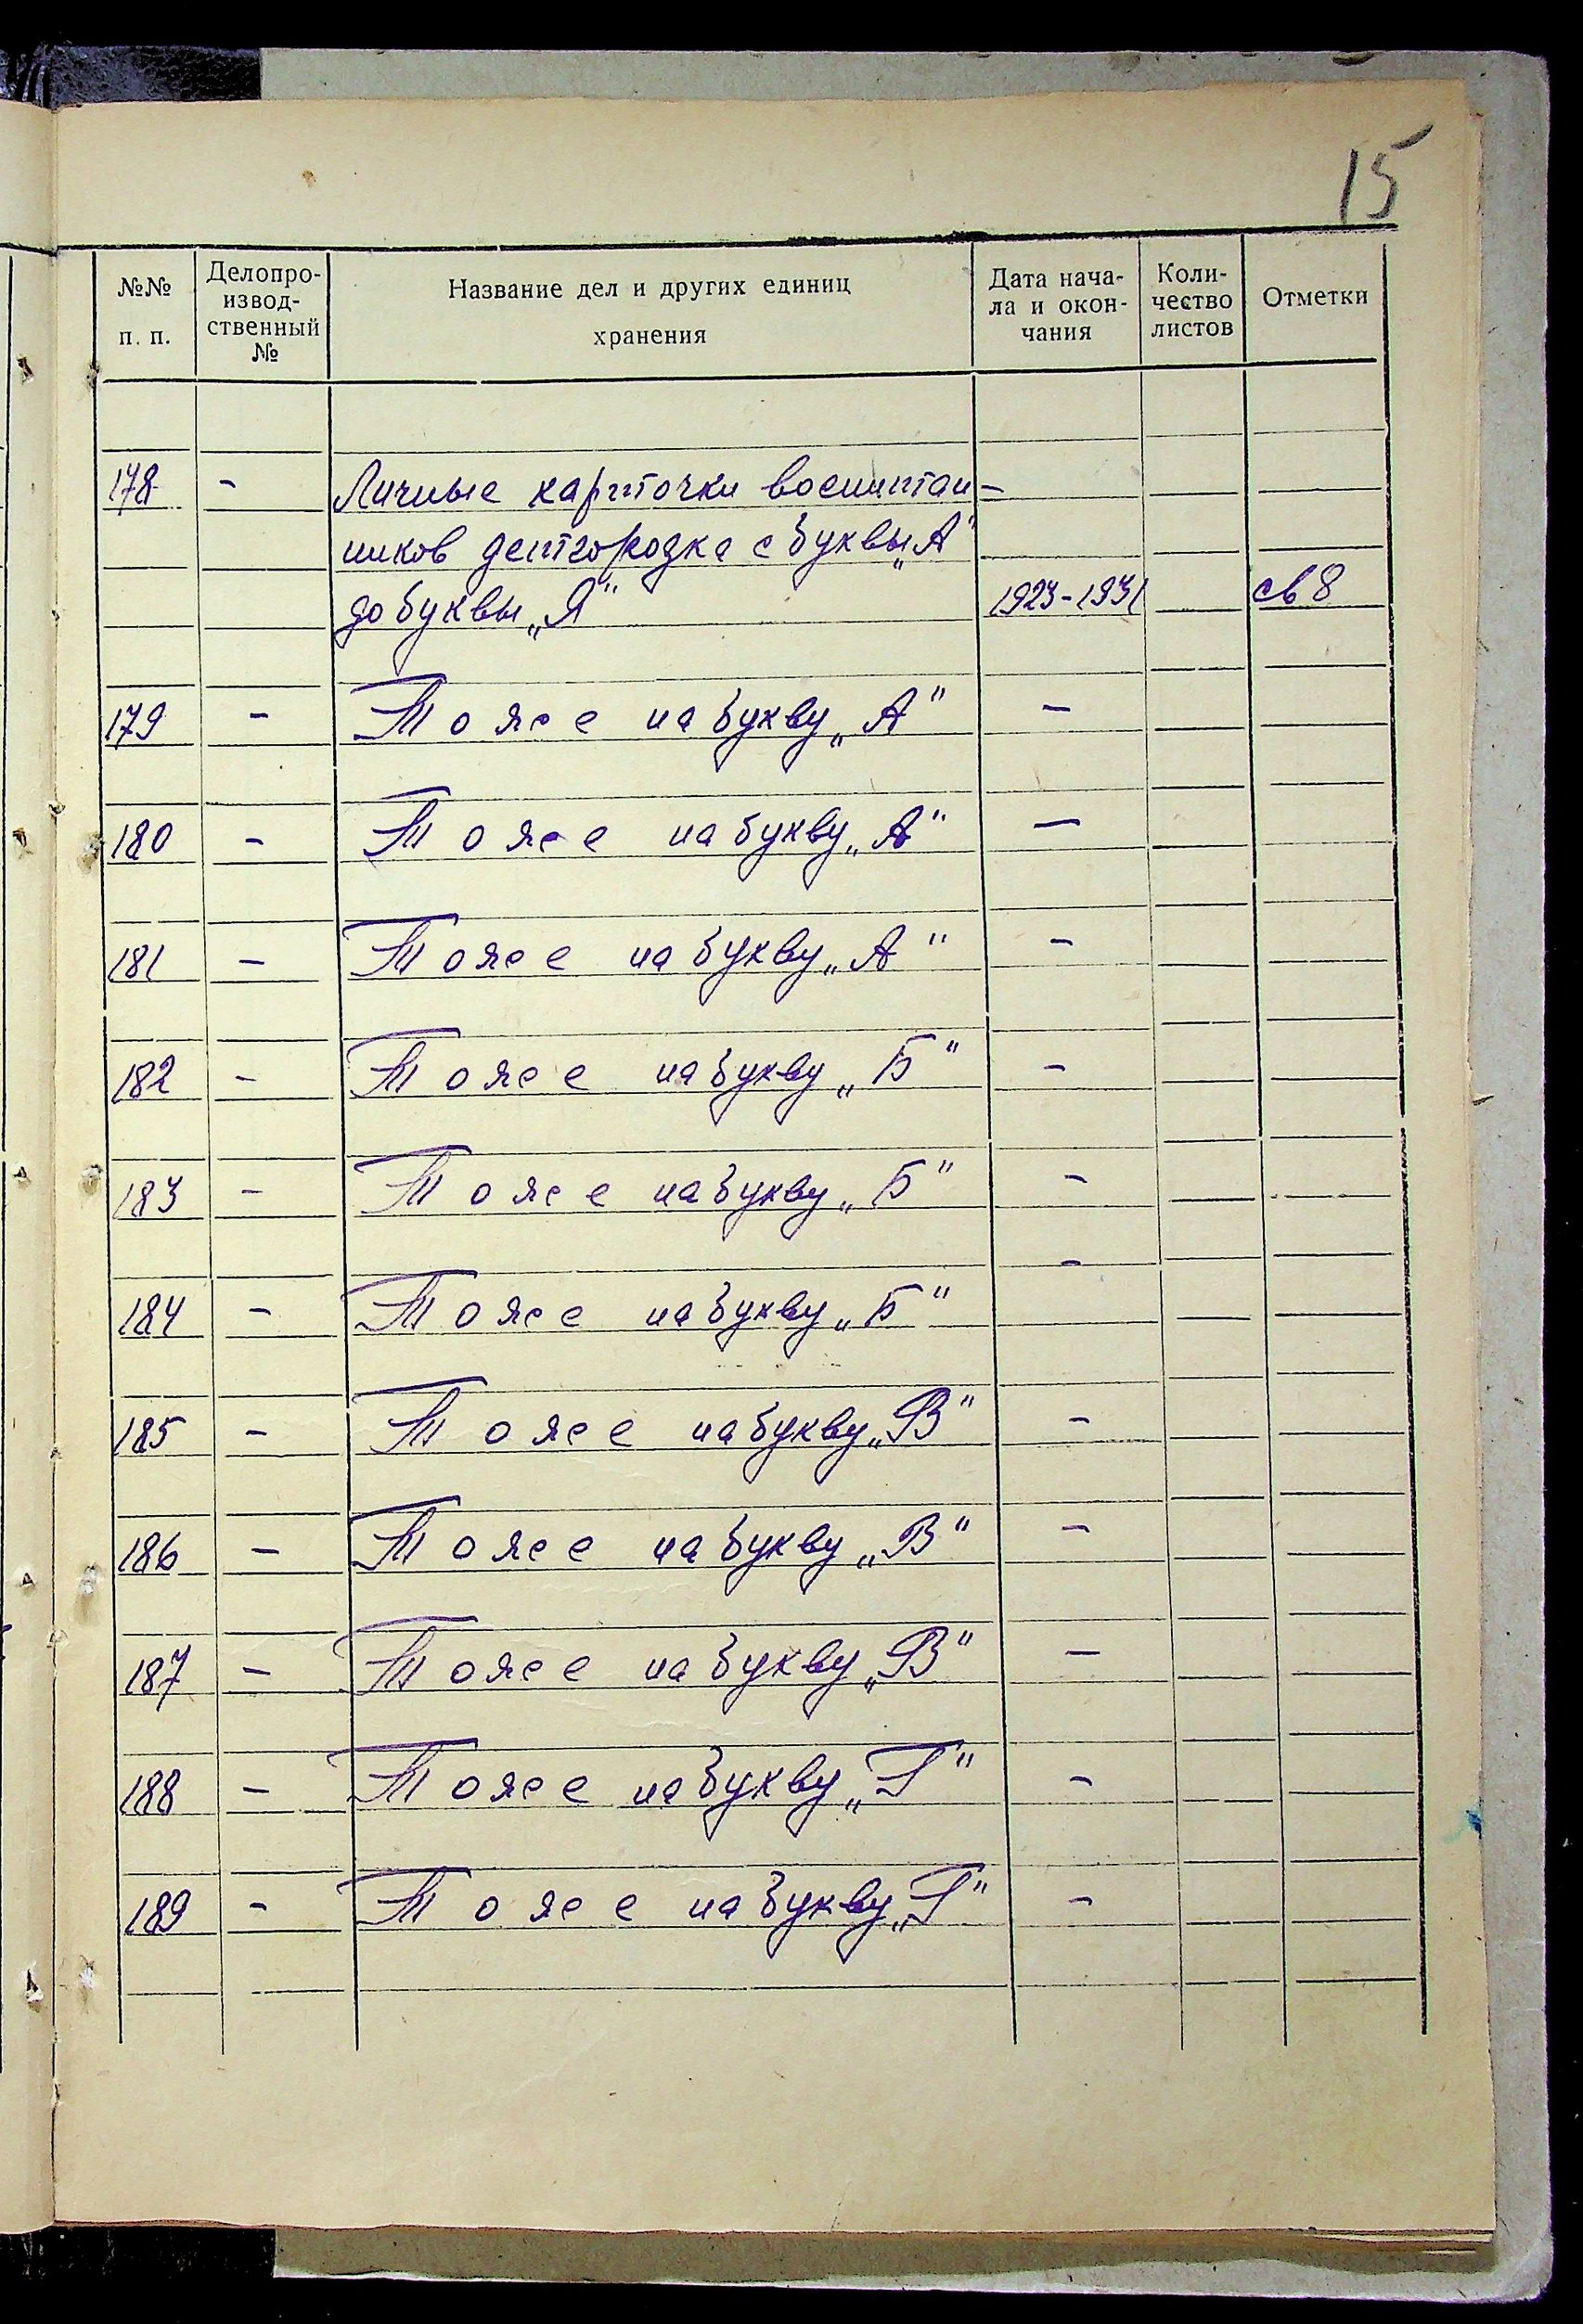 15
№№ п. п.
Делопро-
извод-
ственный
№
Название дел и других единиц
хранения
Дата нача-
ла и окон-
чания
Коли-
чество
листов
Отметки
178 - Личные карточки воспитан-
ников детгородка с буквы „А"
до буквы „Я" 1923-1931 св 8
179 - То же на букву „А" -
180 - То же на букву „А" -
181 - То же на букву „А" -
182 - То же на букву „Б" -
183 - То же на букву „Б" -
184 - То же на букву „Б" -
185 - То же на букву „В" -
186 - То же на букву „В" -
187 - То же на букву „В" -
188 - То же на букву „Г" -
189 - То же на букву „Г" -